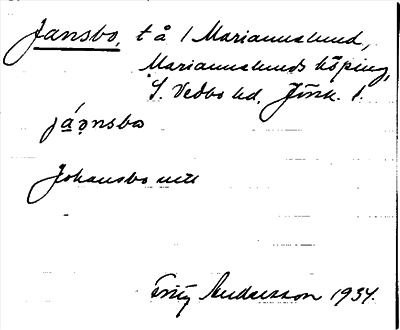 Jansbo, t å 1 Mariannelund,
Mariannelunds köping,
S. Vedbo hd, Jönk. l.
já̱nsbo
Johansbo
Andersson 1934.